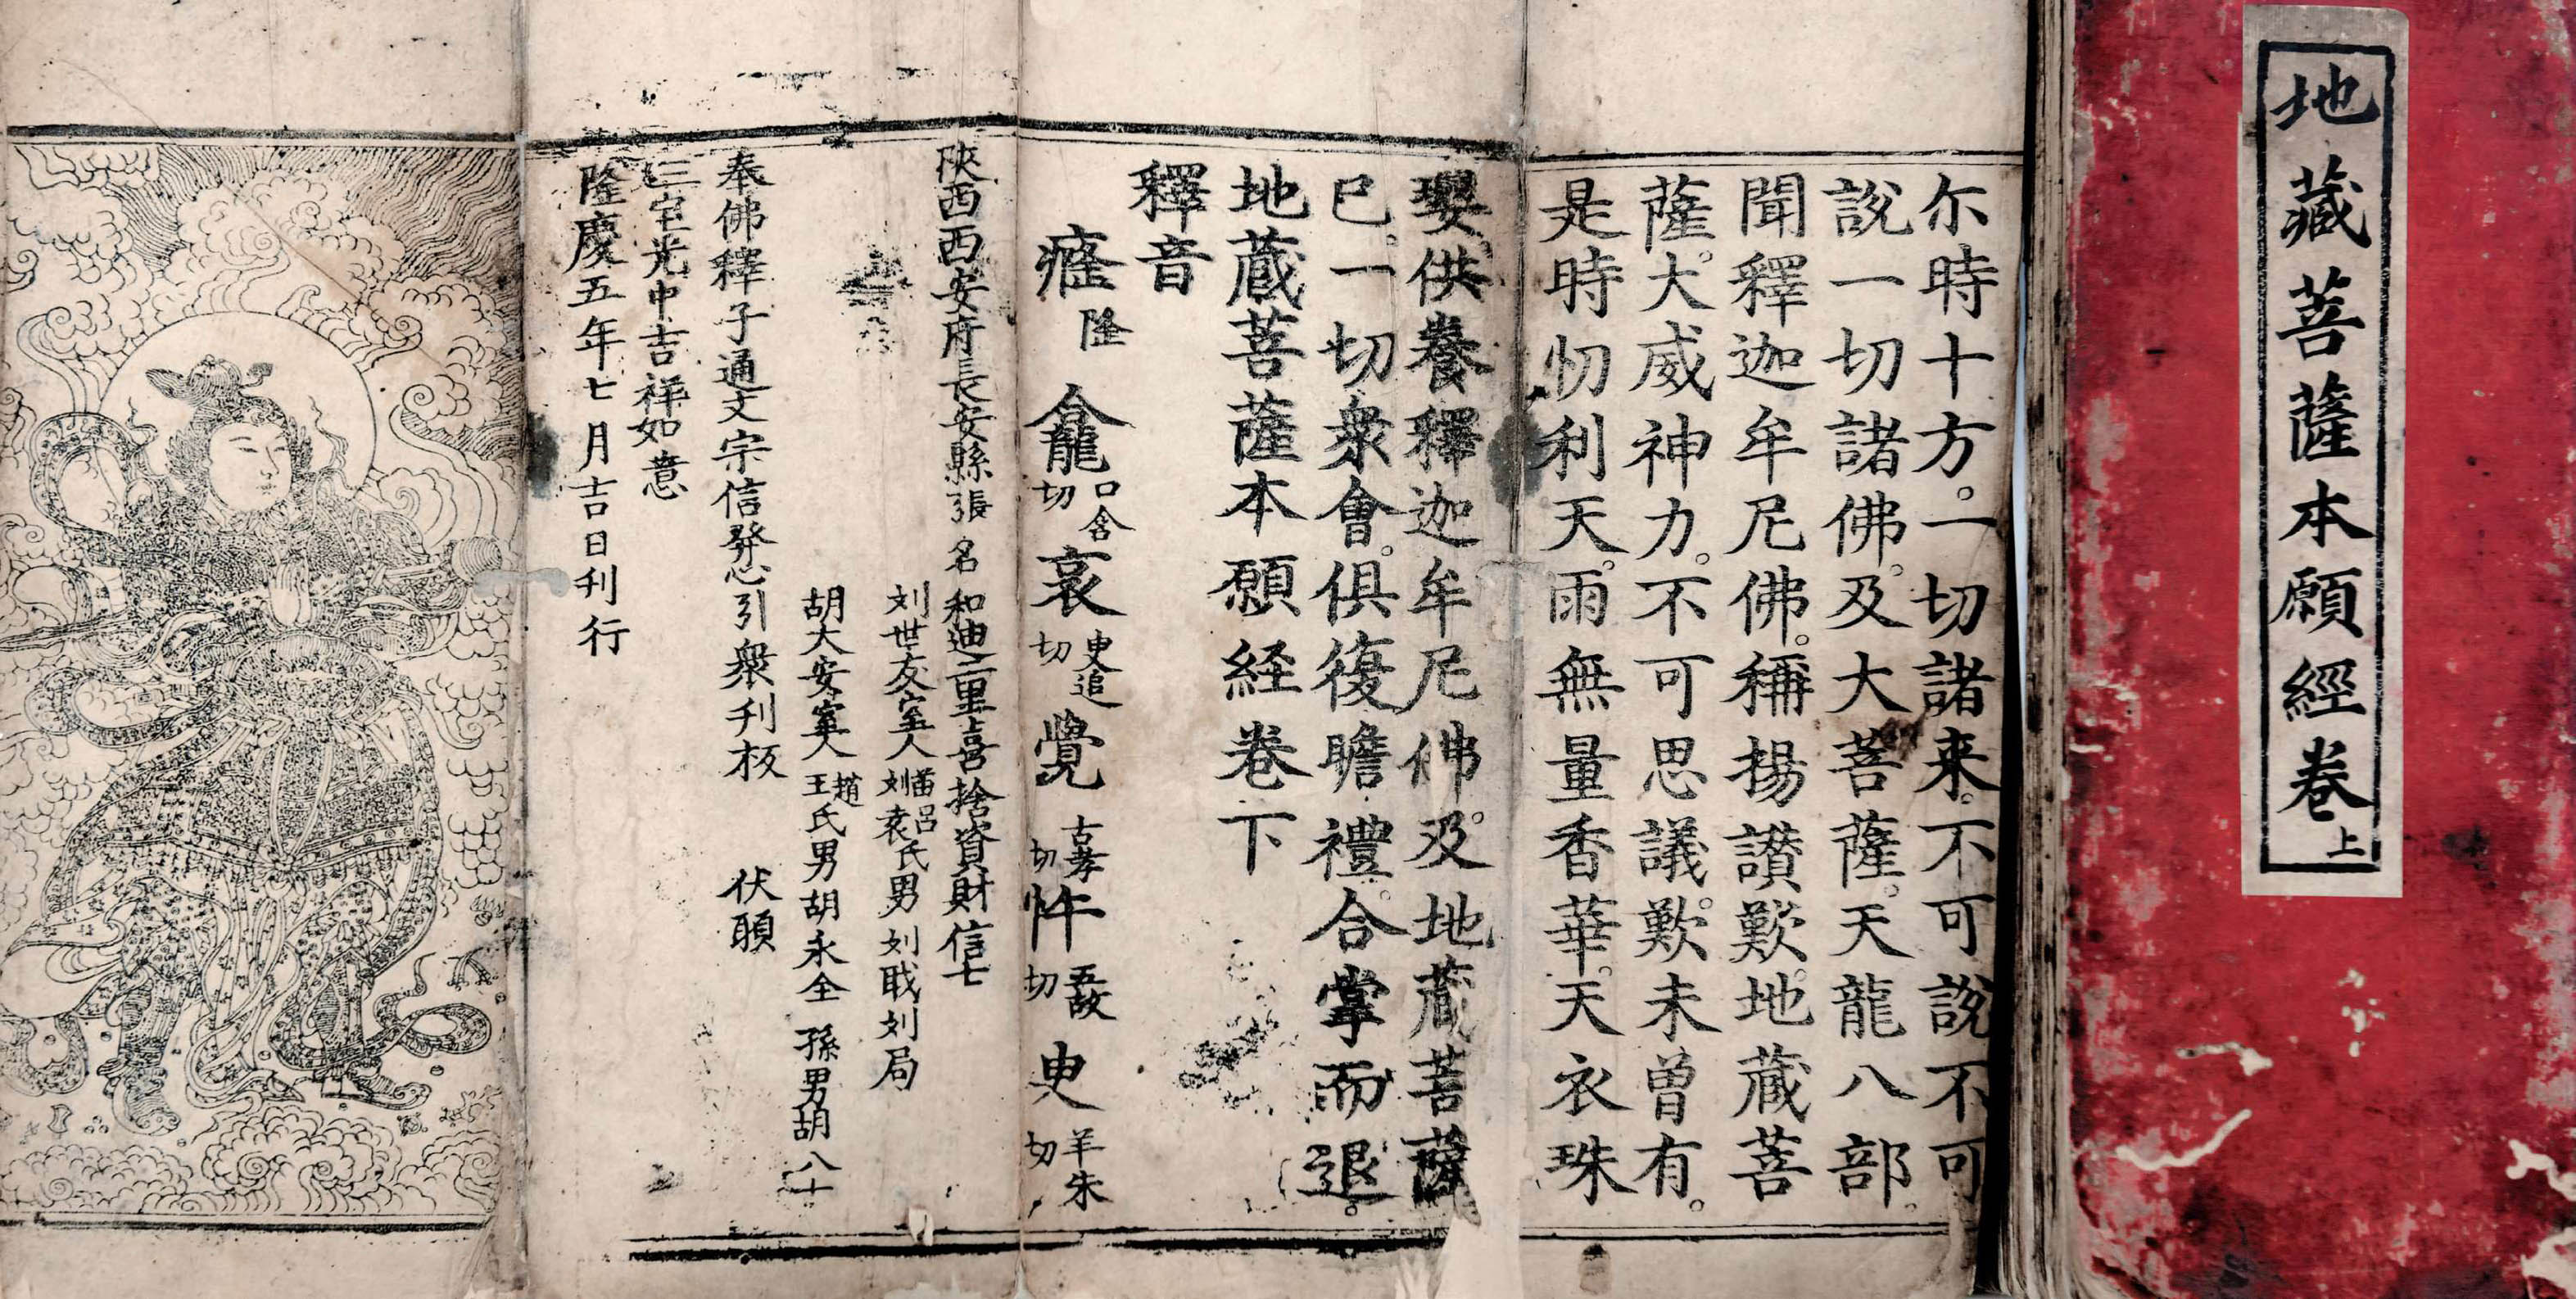 地藏菩薩本願經卷上
尒時十方。一切諸来。不可說不可
說一切諸佛。及大菩薩。天龍八部。
聞釋迦牟尼佛。稱揚讃歎。地蔵菩
薩。大威神力。不可思議。歎未曾有。
是時忉利天。雨無量香華。天衣珠
瓔。供養釋迦牟尼佛。及地蔵菩薩
巳。一切衆會。俱復瞻禮。合掌而退。
地蔵菩薩本願経巻下
釋音
癃隆 龕口含切 衰史追切 覺古孝切 忤五故切 臾羊朱切
陝西西安府長安縣張名和迪二里喜捨資財信士
刘世友室人苗呂刘袁氏男刘戢刘局
胡大安室人趙王氏男胡永全 孫男胡八十
奉佛釋子通文宗信發心引衆刊板 伏願
三宝光中吉祥如意
隆慶五年七月吉日刊行